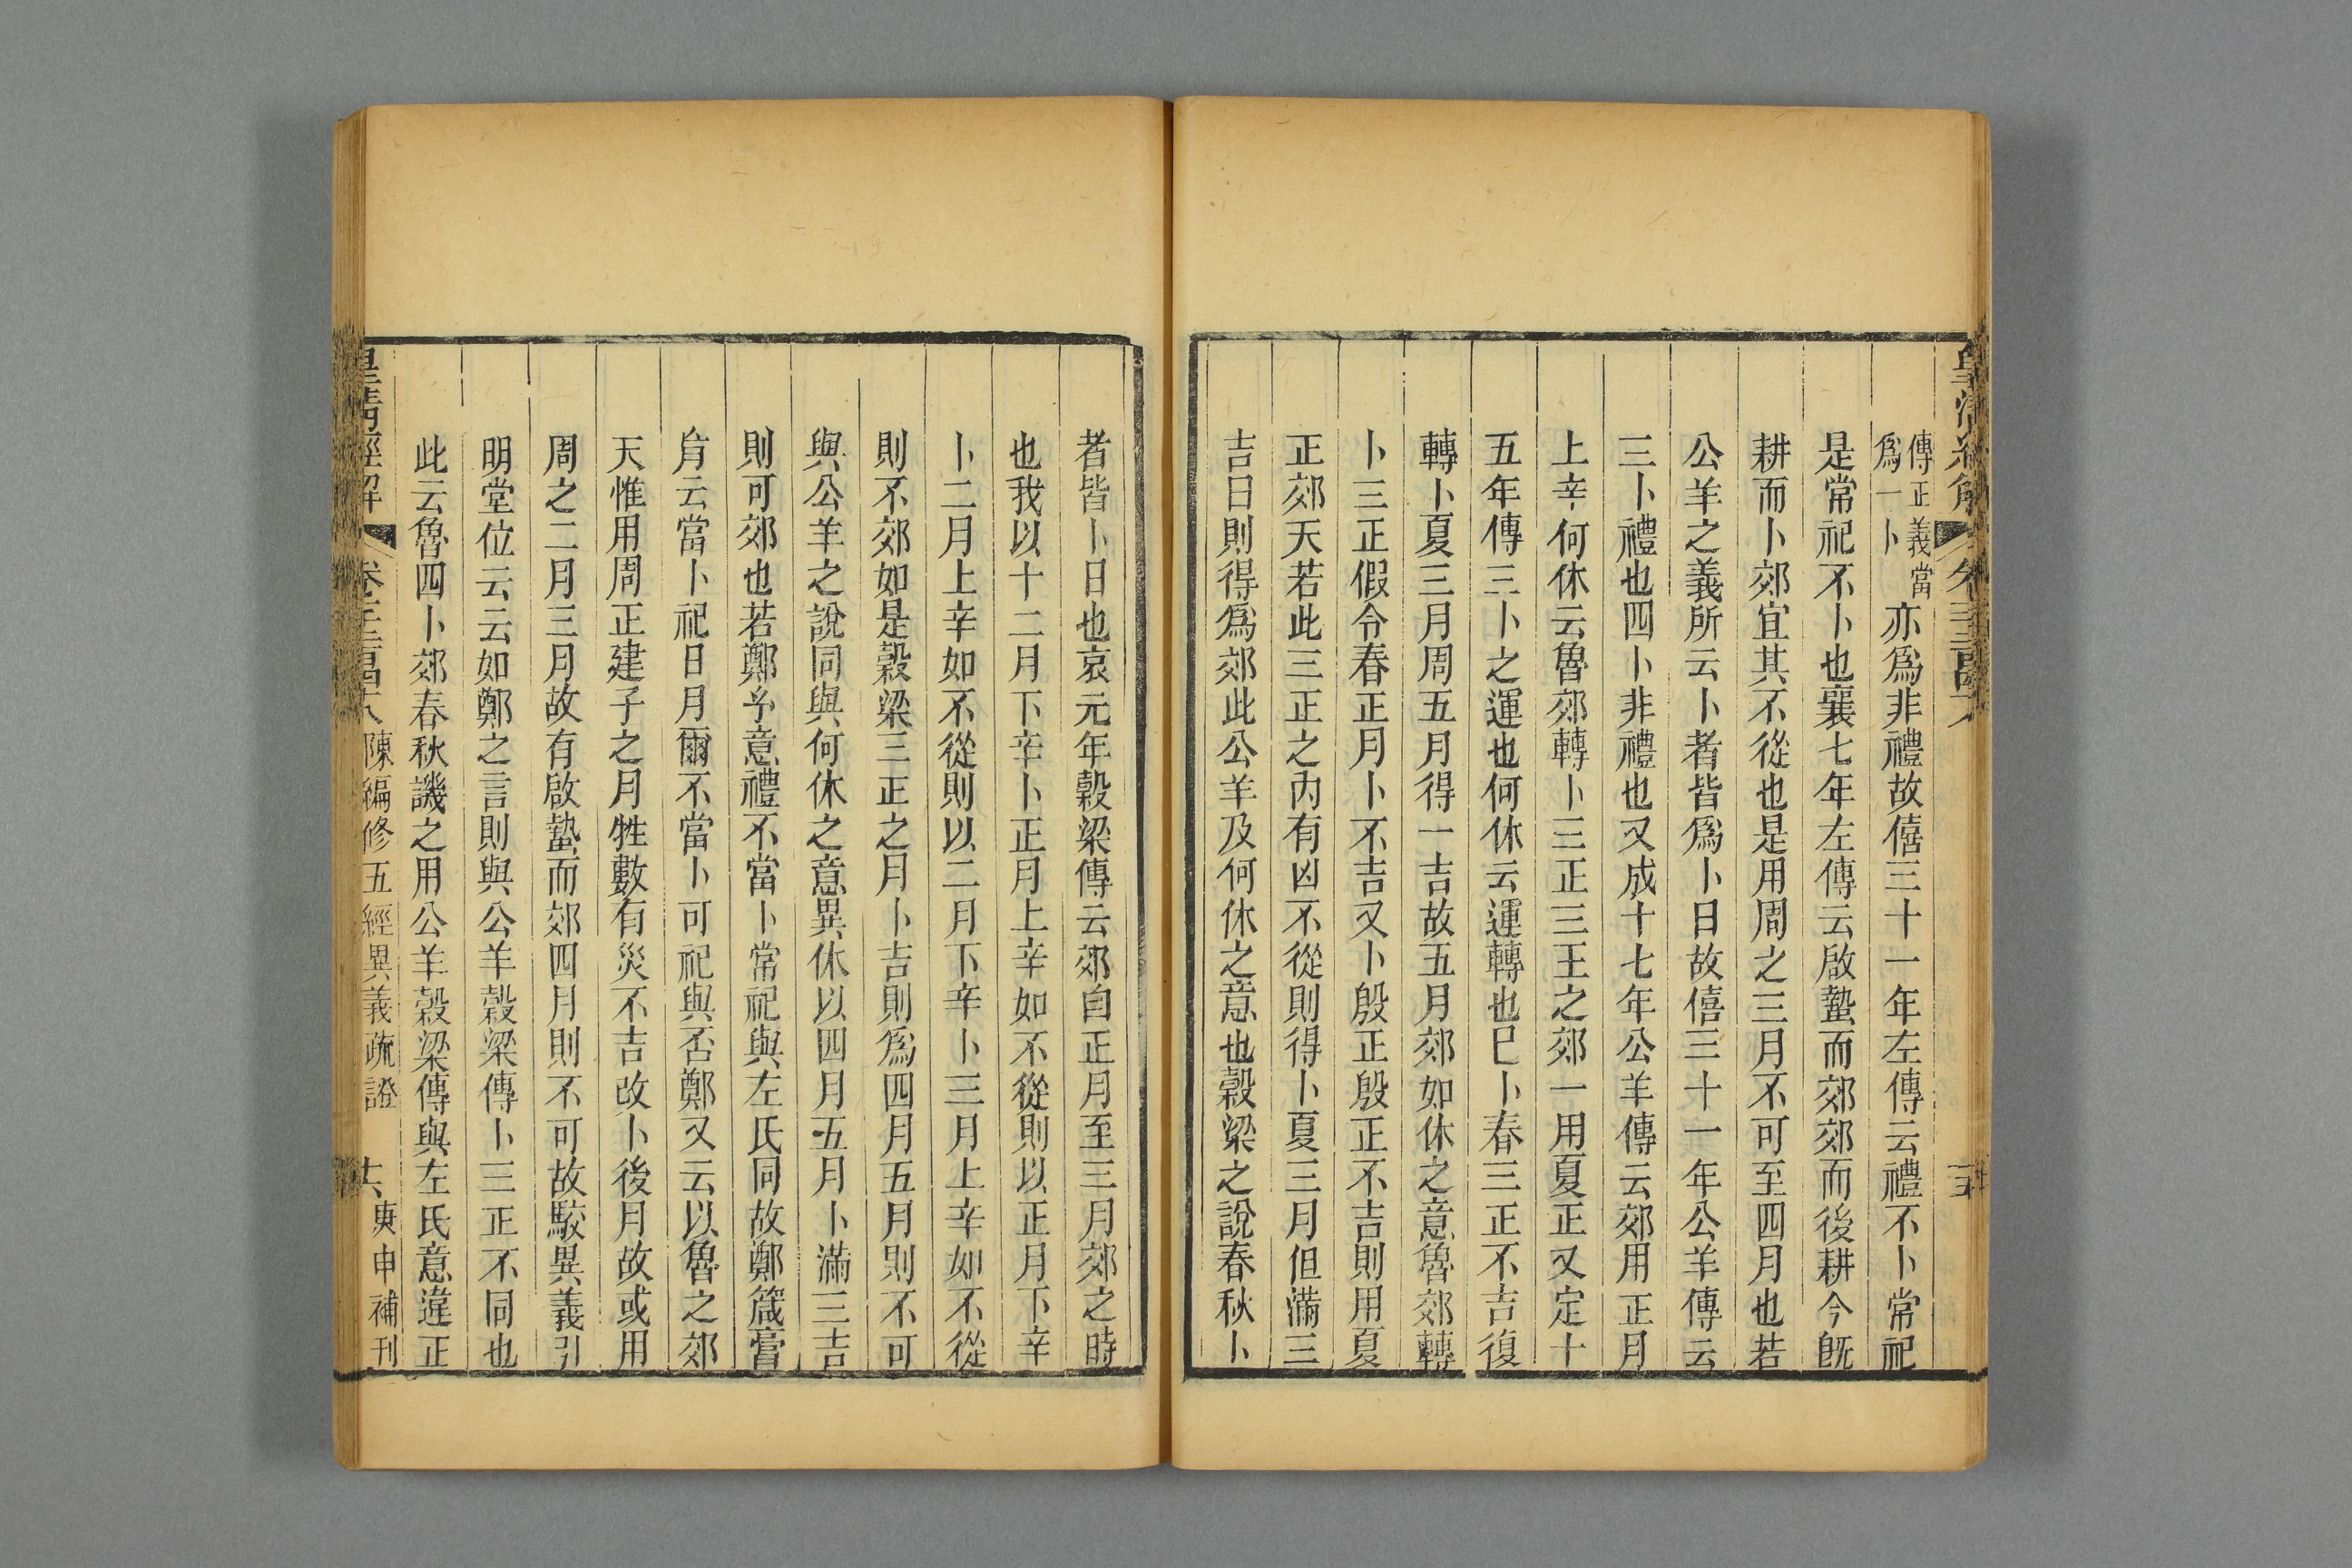 傳正義當
爲一卜
亦爲非禮故僖三十一年左傳云禮不卜常祀
是常祀不卜也襄七年左傳云啟蟄而郊郊而後耕今旣
耕而卜郊宜其不從也是用周之三月不可至四月也若
公羊之義所云卜者皆爲卜日故僖三十一年公羊傳云
三卜禮也四卜非禮也又成十七年公羊傳云郊用正月
上辛何休云魯郊轉卜三正三王之郊一用夏正又定十
五年傳三卜之運也何休云運轉也巳卜春三正不吉復
轉卜夏三月周五月得一吉故五月郊如休之意魯郊轉
卜三正假令春正月卜不吉又卜殷正殷正不吉則用夏
正郊天若此三正之內有凶不從則得卜夏三月但滿三
吉日則得爲郊此公羊及何休之意也穀梁之說春秋卜
者皆卜日也哀元年穀梁傳云郊自正月至三月郊之時
也我以十二月下辛卜正月上辛如不從則以正月下辛
卜二月上辛如不從則以二月下辛卜三月上辛如不從
則不郊如是穀梁三正之月卜吉則爲四月五月則不可
與公羊之說同與何休之意異休以四月五月卜滿三吉
則可郊也若鄭予意禮不當卜常祀與左氏同故鄭箴膏
肓云當卜祀日月爾不當卜可祀與否鄭又云以魯之郊
天惟用周正建子之月牲數有災不吉改卜後月故或用
周之二月三月故有啟蟄而郊四月則不可故駮異義引
明堂位云云如鄭之言則與公羊穀梁傳卜三正不同也
此云魯四卜郊春秋譏之用公羊穀梁傳與左氏意違正
皇淸經解 卷 陳編修五經異義疏證 庚申補刊